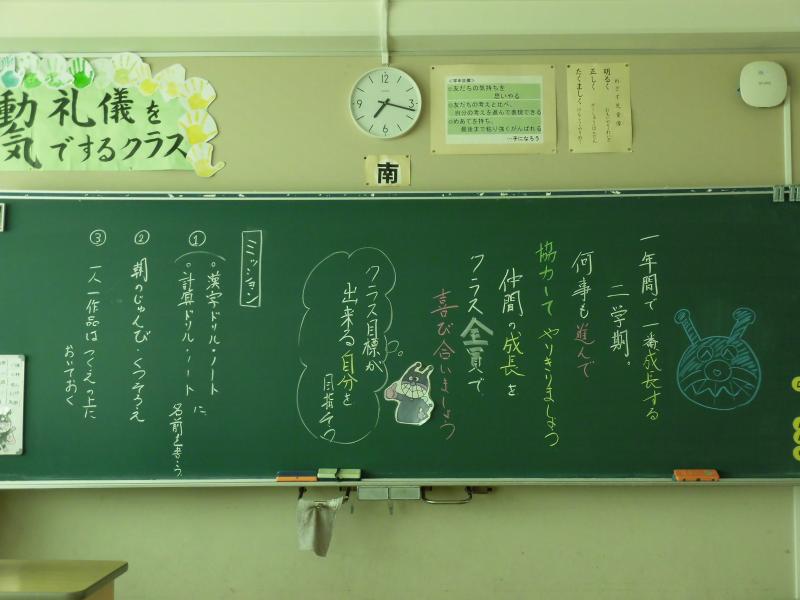 動礼儀を
気でするクラス
12
3
<学年目標>
○友だちの気持ちを
思いやる
○友だちの考えと比べ、
自分の考えを進んで表現できる
○めあてを持ち、
最後まで粘り強くがんばれる
子になろう
めざす児童像
明るく
正しく
たくましく
南
一年間で一番成長する
二学期。
何事も進んで
協力してやりきりましょう
仲間の成長を
クラス全員で
喜び合いましょう
クラス目標が
出来る自分を
目指そう
ミッション
①
○漢字ドリル・ノート
○計算ドリル・ノート
に
名前を書こう
② 朝のじゅんび・くつそろえ
③ 一人一作品はつくえの上に
おいておく